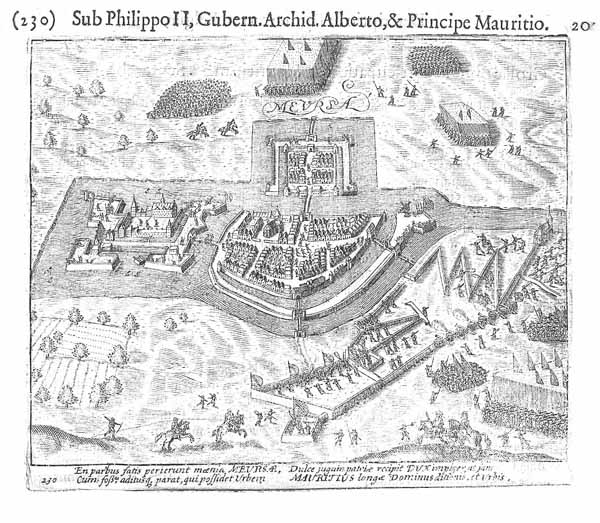 (230) Sub Philippo II, Gubern. Archid. Alberto, & Principe Mauritio. 20
MEURSÆ
En paribus fatis perierunt mœnia MEURSÆ,
Cum fossis aditusq, parat, qui possidet Urbem
Dulce jugum patriæ recipit DUX impiger, ac jam
MAURITIUS longæ Dominus ditionis, et Urbis.
230